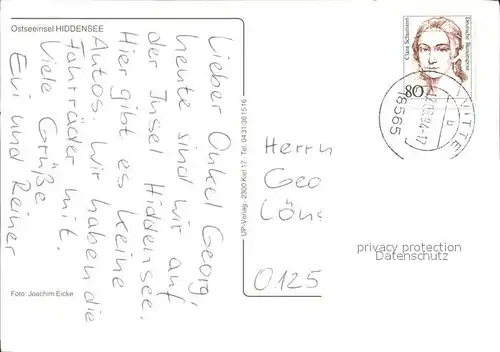 Ostseeinsel HIDDENSEE
Lieber Onkel Georg,
heute sind wir auf
der Insel Hiddensee.
Hier gibt es keine
Autos. Wir haben die
Fahrräder mit.
Viele Grüße
Evi und Reiner
Foto: Joachim Eicke
UP-Verlag · 2300 Kiel 17 · Tel. 0431-361516
Clara Schumann
Deutsche Bundespost
80
VITTE
b
18565
Herrn
Geo
Löns
0125
privacy protection
Datenschutz